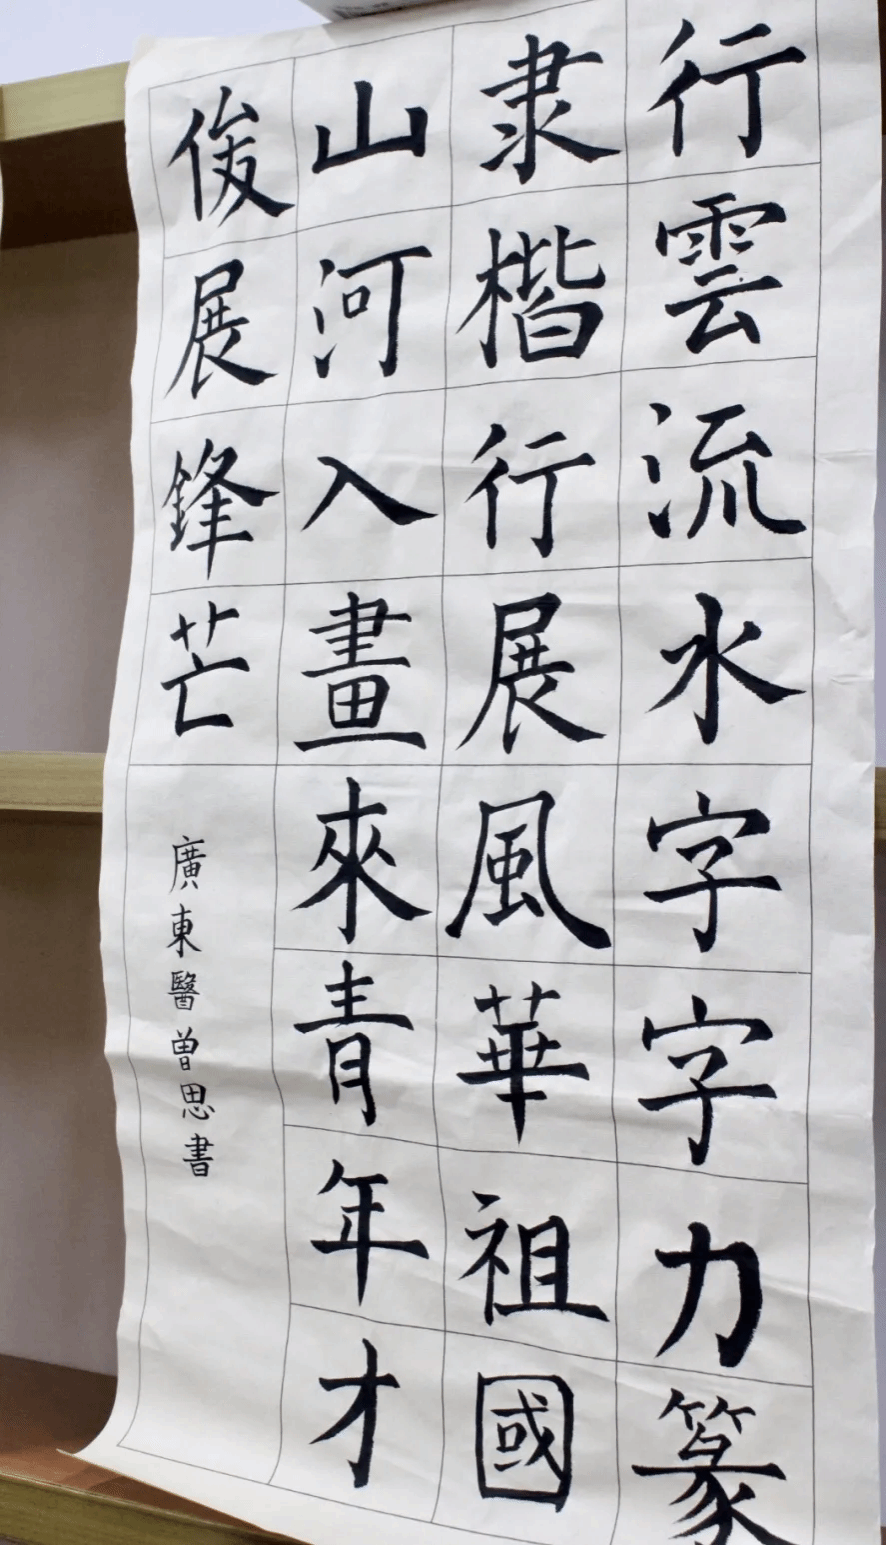 行雲流水字字力篆
隶楷行展風華祖國
山河入畫來青年才
俊展鋒芒
廣東醫曾思書